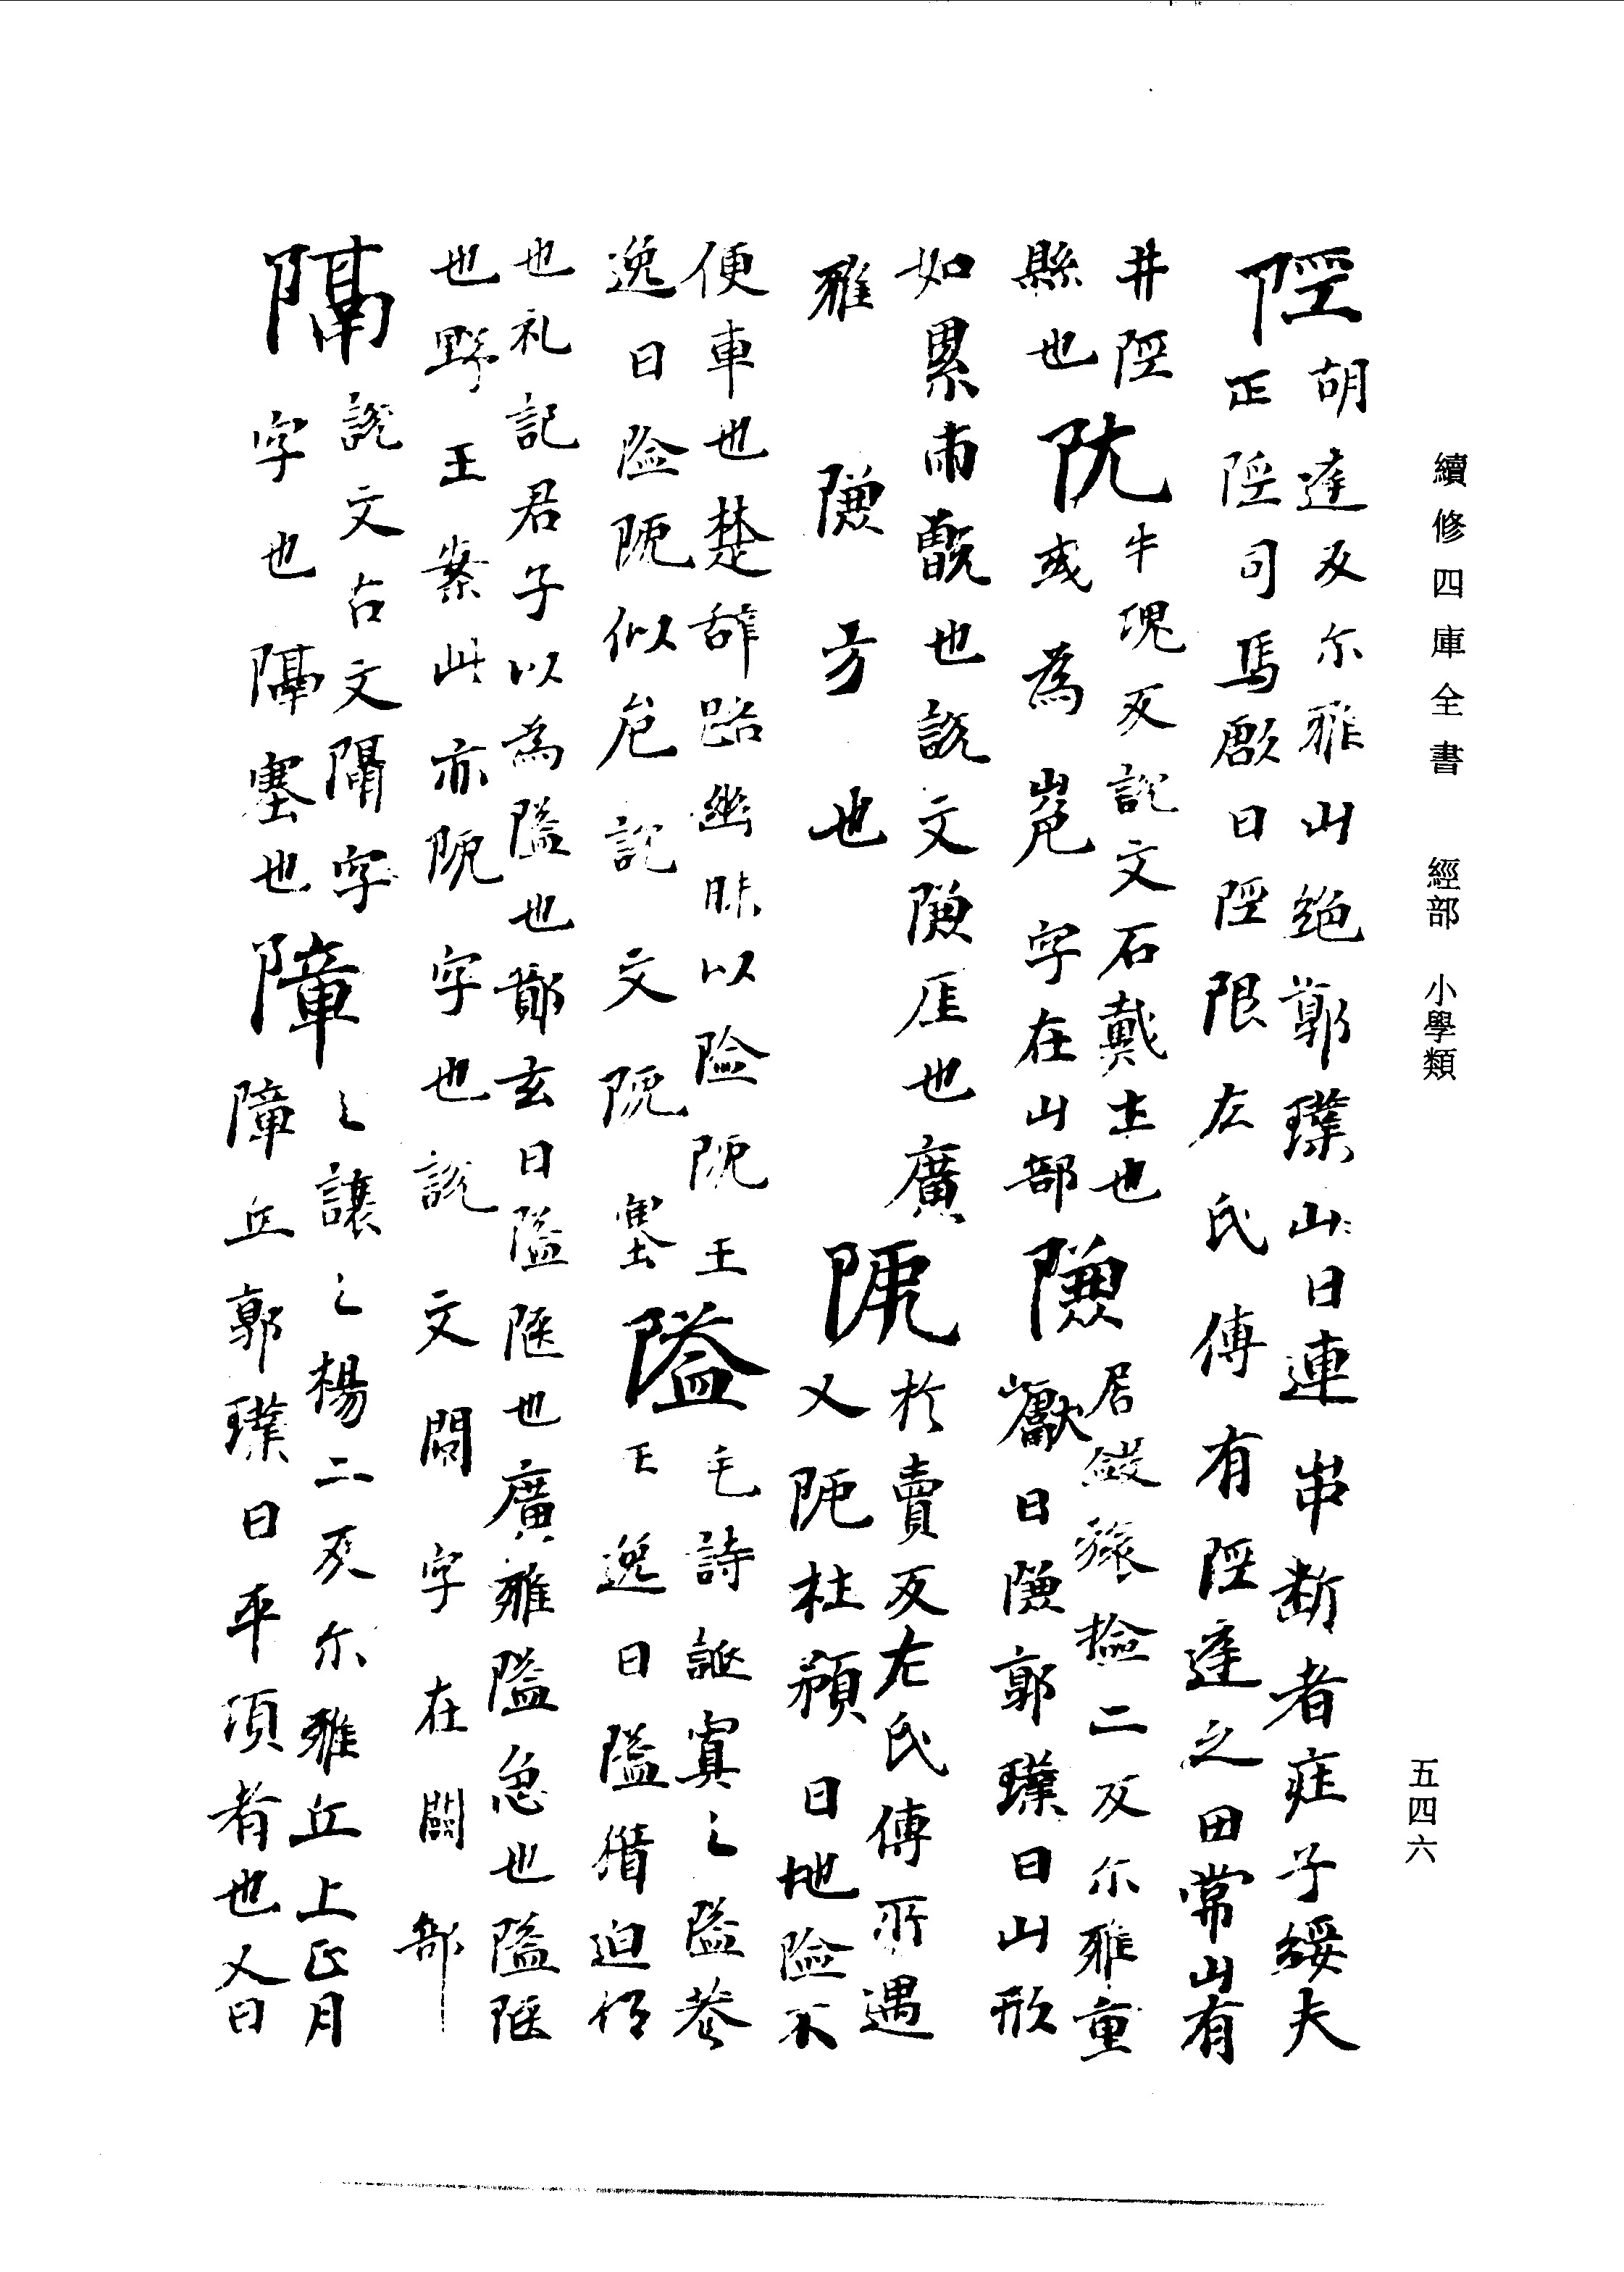 續修四庫全書 經部 小學類
陘
胡達反尓雅山絶鄭璞山〻曰連串断者疰子綏夫
正陘司馬彪曰陘限左氏傳有陘逹之田常山有
井陘
縣也
阢
牛塊反説文石戴土也
或為嵬字在山部
隒
居儼猿撿二反尓雅重
巘曰隒郭璞曰山形
如累兩甑也説文隒厓也廣
雅隒方也
阸
於賣反左氏傳所遇
又阨杜預曰地險不
便車也楚辞路幽昧以險阨王
逸曰險阨似危説文阨塞
隘
毛詩誕寘之隘巷
王逸曰隘猶迫
也礼記君子以為隘也鄭玄曰隘陋也廣雅隘急也隘陋
也野王案此亦阨字也説文字在部
隔
説文古文隔字
字也隔塞也
障
之讓之楊二反尓雅丘上正月
障丘郭璞曰平頂者也又曰
五四六